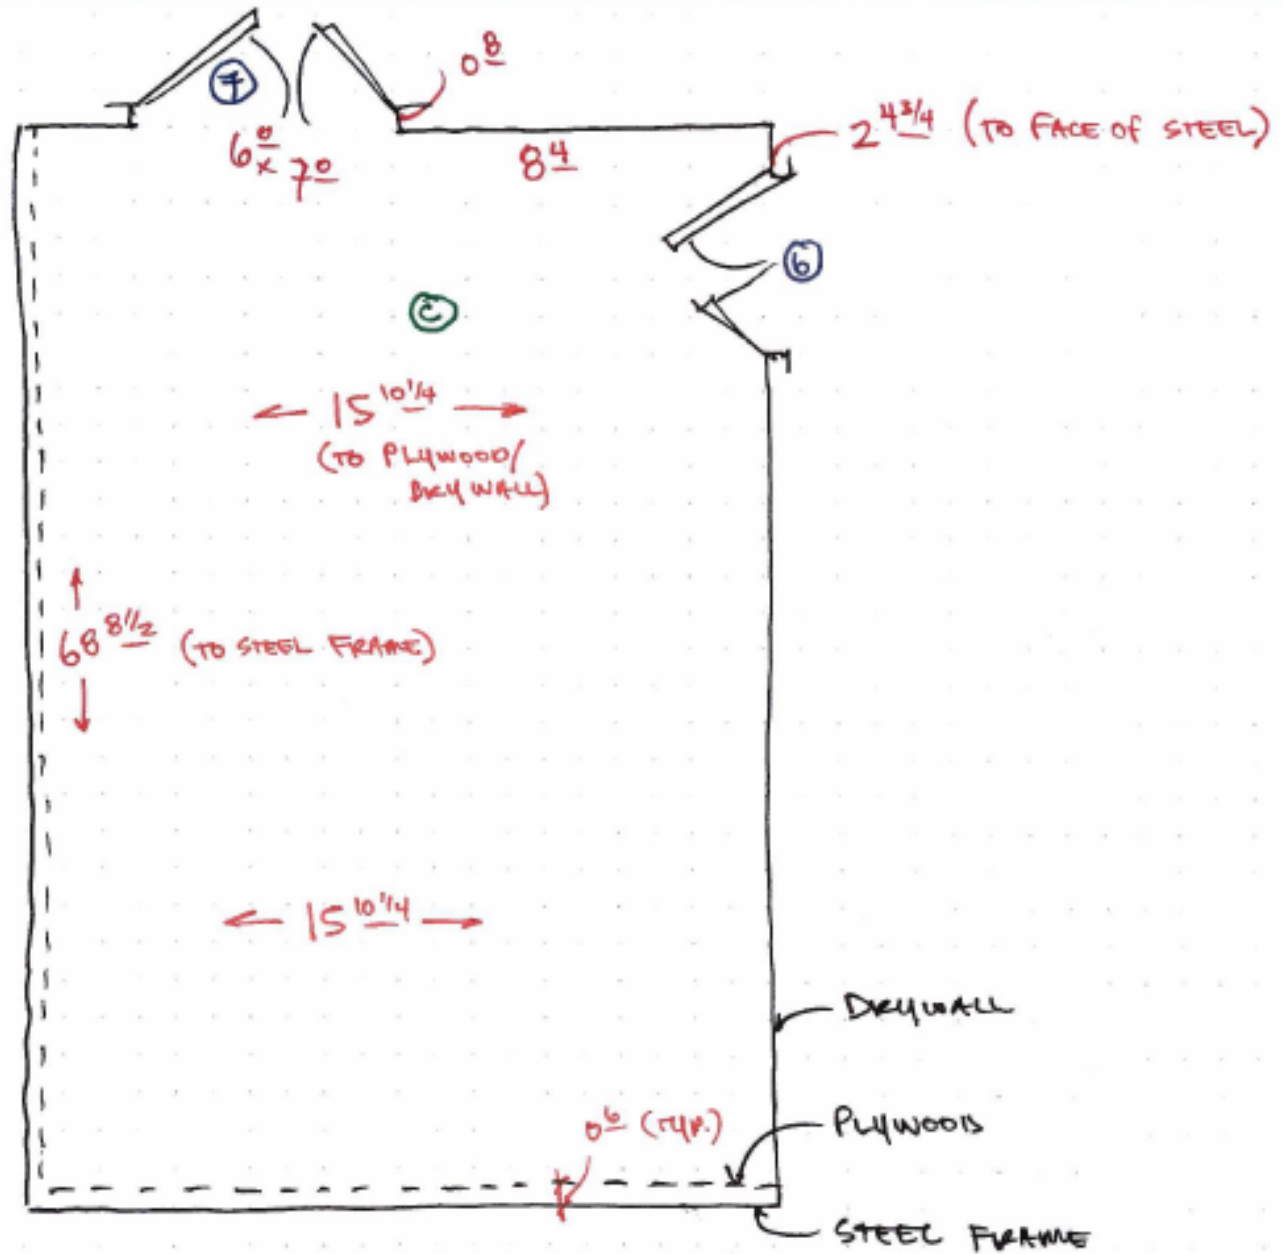 7
0 8
2 4 3/4 (TO FACE OF STEEL)
6 0
x 7 0
8 4
6
C
15 10 1/4
(TO PLYWOOD/
DRYWALL)
68 8 1/2 (TO STEEL FRAME)
15 10 1/4
DRYWALL
0 6 (TYP.)
PLYWOOD
STEEL FRAME